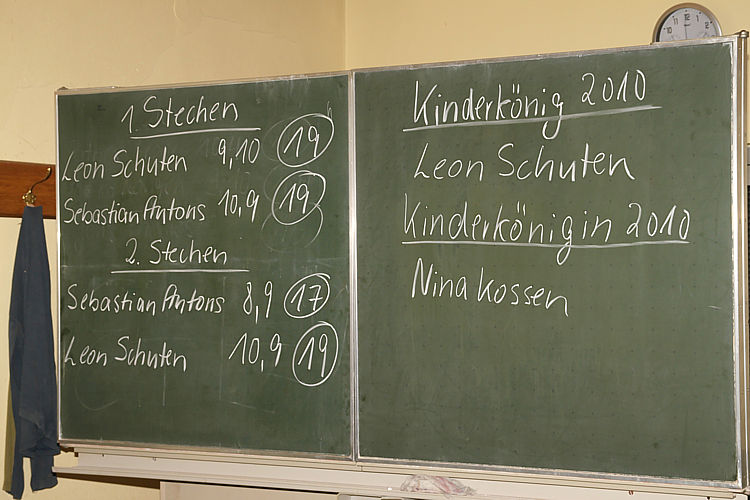 1. Stechen
Leon Schuten 9,10 19
Sebastian Antons 10,9 19
2. Stechen
Sebastian Antons 8,9 17
Leon Schuten 10,9 19
Kinderkönig 2010
Leon Schuten
Kinderkönigin 2010
Nina Kossen